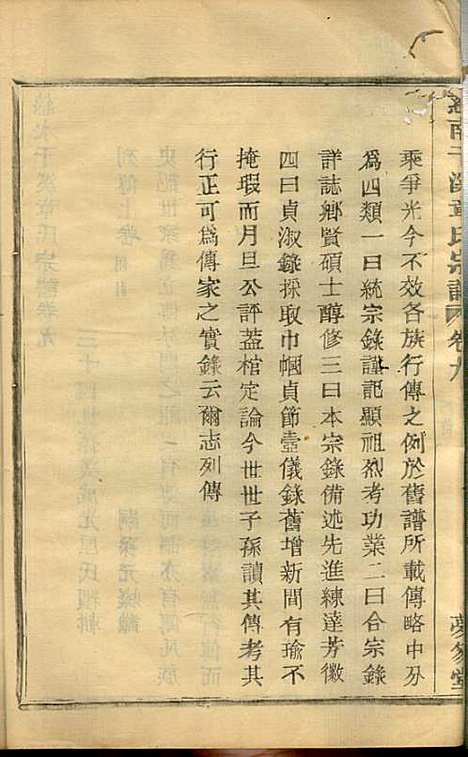 澗南干溪章氏宗譜 卷九 夢芻堂
乘爭光今不效各族行傳之例於舊譜所載傳略中分
爲四類一曰統宗錄謹記顯祖烈考功業二曰合宗錄
詳誌鄉賢碩士醇修三曰本宗錄備述先進練達芳徽
四曰貞淑錄採取巾幗貞節壼儀錄舊增新間有瑜不
掩瑕而月旦公評蓋棺定論今世世子孫讀其傳考其
行正可爲傳家之實錄云爾志列傳